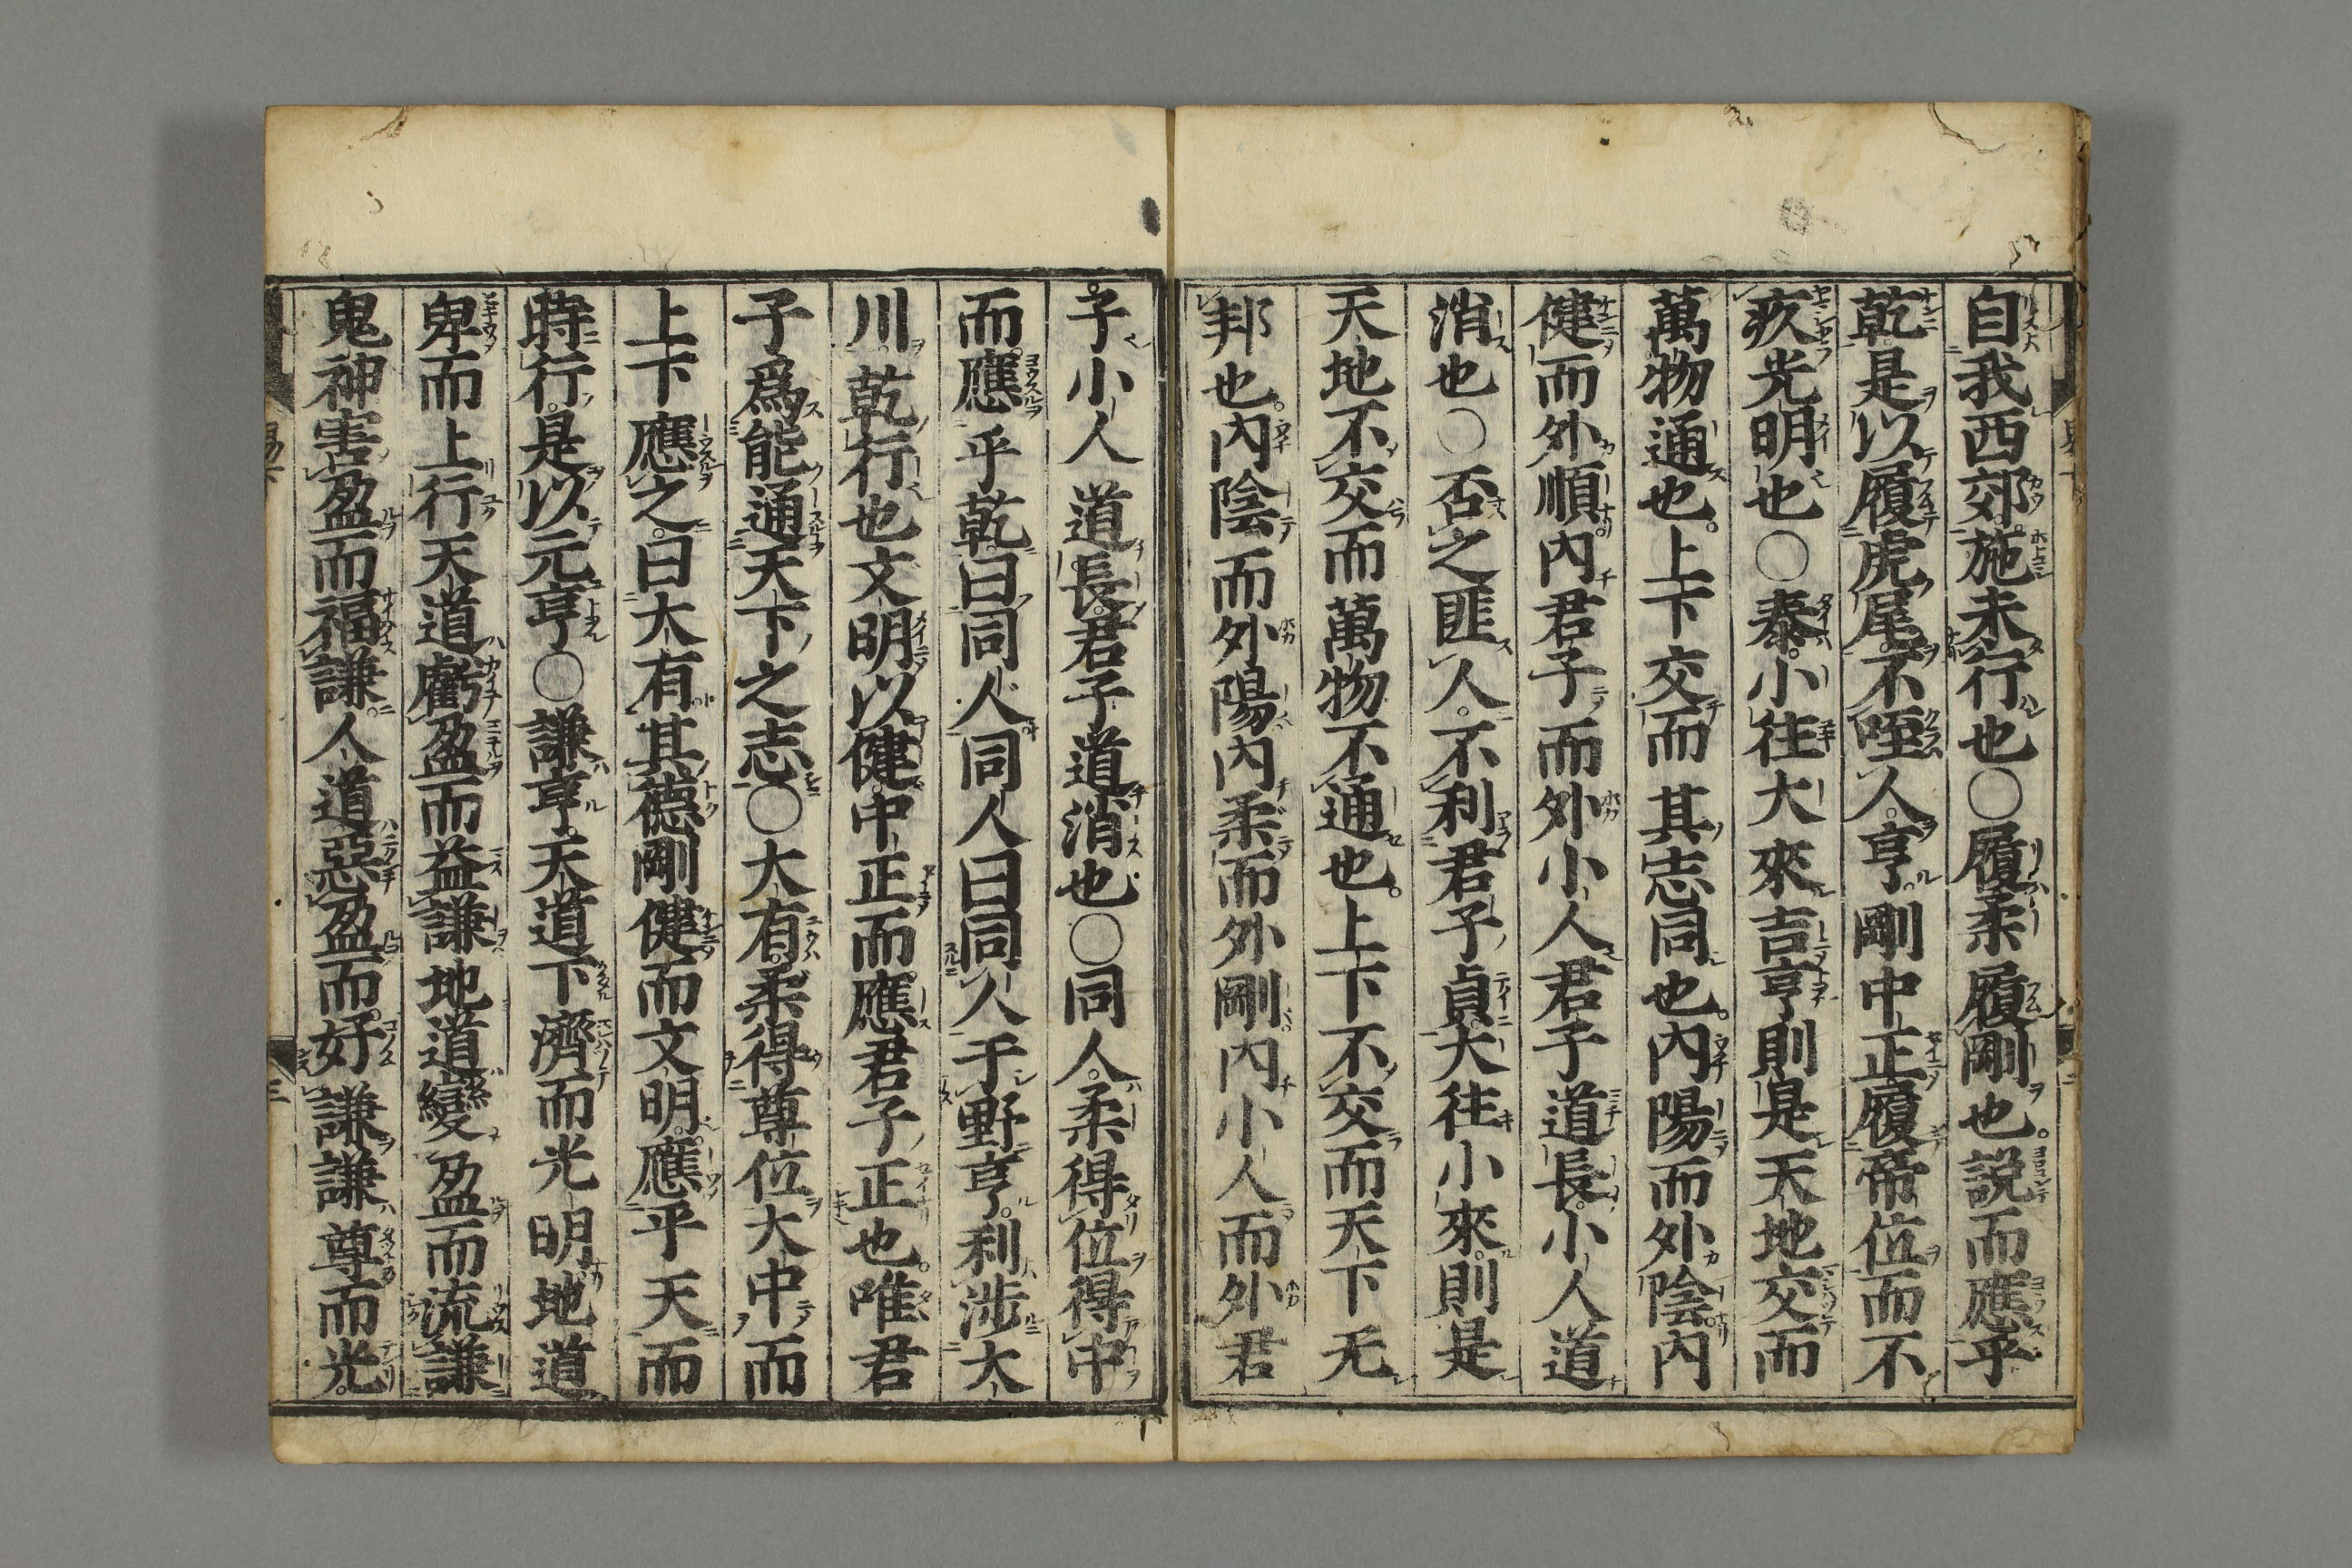 自我西郊施未行也○履柔履剛也說而應乎
乾是以履虎尾不咥人亨剛中正履帝位而不
疚光明也○泰小往大來吉亨則是天地交而
萬物通也上下交而其志同也內陽而外陰內
健而外順內君子而外小人君子道長小人道
消也○否之匪人不利君子貞大往小來則是
天地不交而萬物不通也上下不交而天下无
邦也內陰而外陽內柔而外剛內小人而外君
子小人道長君子道消也○同人柔得位得中
而應乎乾曰同人同人曰同人于野亨利涉大
川乾行也文明以健中正而應君子正也唯君
子爲能通天下之志○大有柔得尊位大中而
上下應之曰大有其德剛健而文明應乎天而
時行是以元亨○謙亨天道下濟而光明地道
卑而上行天道虧盈而益謙地道變盈而流謙
鬼神害盈而福謙人道惡盈而好謙謙尊而光